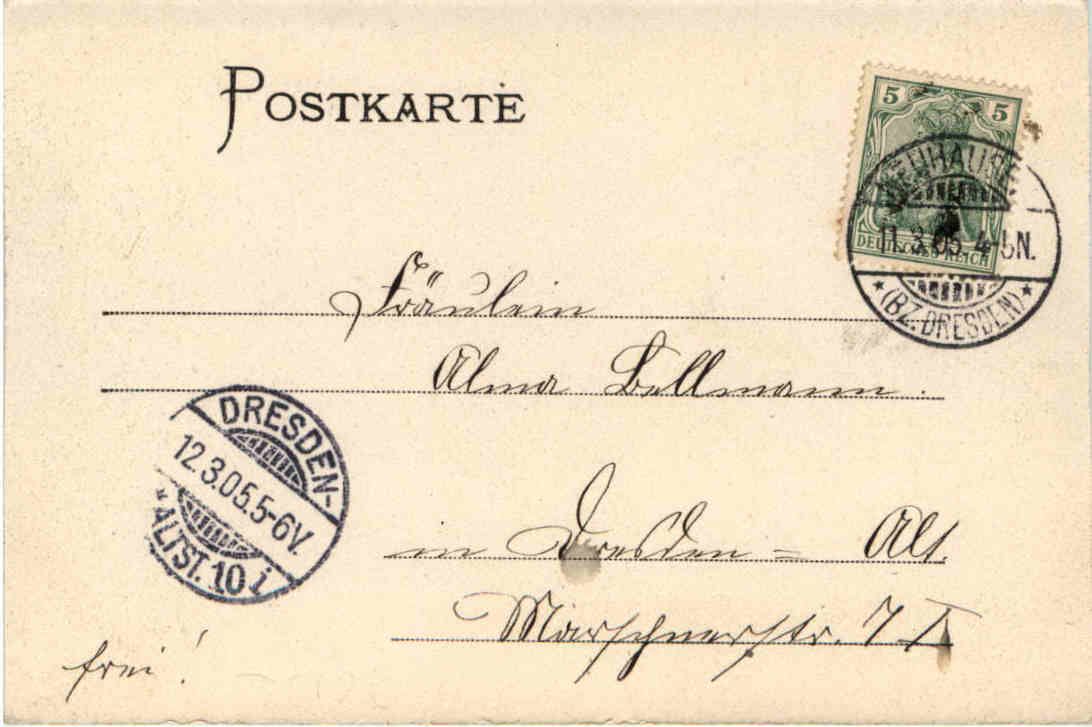 POSTKARTE
5 5
NEUHAUSEN
11.3.05.4-5N.
DEUTSCHES REICH
*(BZ. DRESDEN)*
Fräulein
Alma Bellmann.
DRESDEN-
12.3.05.5-6V.
*ALTST. 10 i
in Dresden - Alt.
Marschnerstr. 7 I
frei!